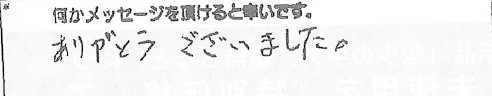 何かメッセージを頂けると幸いです。
ありがとう ございました。